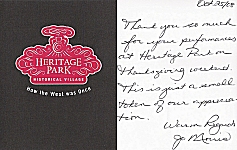 HERITAGE
PARK
HISTORICAL VILLAGE
How the West was Once
Oct 25/08
Thank you so much
for your performances
at Heritage Park on
Thanksgiving weekend.
This is just a small
token of our apprecia-
tion.
Warm Regards